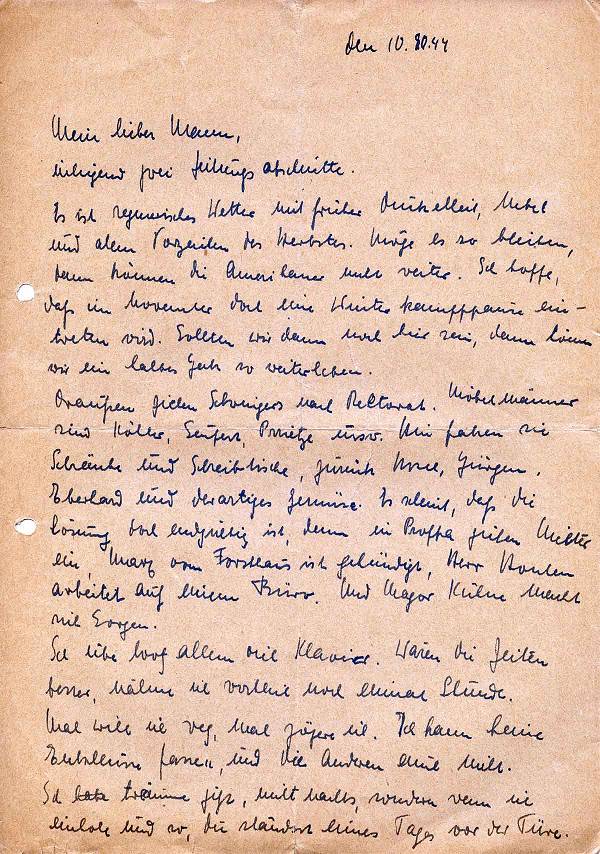 den 10.10.44
Mein lieber Mann,
einliegend zwei Zeitungsabschnitte.
Es ist regnerisches Wetter mit früher Dunkelheit, Nebel
und allem Vorzeichen des Herbstes. Möge es so bleiben,
dann können die Amerikaner nicht weiter. Ich hoffe,
daß im November doch eine Winterkampfpause ein-
treten wird. Sollten wir dann noch hier sein, dann können
wir ein halbes Jahr so weiterleben.
Draußen ziehen nach Rektorat. Möbelmänner
sind Köller, Seufert, usw. Hin fahren sie
Schränke und Schreibtische, zurück Jürgen,
Eberhard und derartiges Gemüse. Es scheint, daß die
Lösung doch endgültig ist, denn in ziehen
ein, vom Forsthaus ist gekündigt, Herr
arbeitet auf einem Büro. Und Major Kühne macht
sich Sorgen.
Ich übe trotz allem viel Klavier. Wären die Zeiten
besser, nähme ich vielleicht noch einmal Stunde.
Mal will ich weg, mal zögere ich. Ich kann keine
Entschlüsse fassen, und die Anderen auch nicht.
Ich träume jetzt, nicht nachts, sondern wenn ich
einhole und so, du ständest eines Tages vor der Türe.